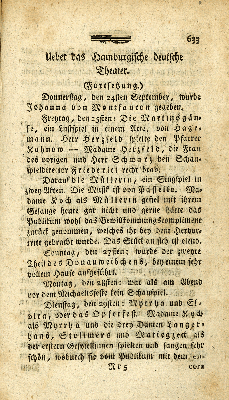 633
Ueber das Hamburgische deutsche
Theater.
(Fortsetzung.)
Donnerstag, den 24sten September, wurde
Johanna von Montfaucon gegeben.
Freytag, den 25sten: Die Martinsgän-
se, ein Lustspiel in einem Acte, von Hage-
mann. Herr Herzfeld spielte den Pfarrer
Kuhnow — Madame Herzfeld, die Frau
des vorigen und Herr Schwarz den Schau-
spieldirector Friederici recht brav;
Darauf die Müllerin, ein Singspiel in
zwey Akten. Die Musik ist von Paesello. Ma-
dame Koch als Müllerin gefiel mit ihrem
Gesange heute gar nicht und hätte das
Publikum wohl das Bewillkommungskompliment
zurück genommen, welches ihr bey dem Hervor-
treten gebracht wurde. Das Stück an sich ist elend.
Sonntag, den 27sten: wurde der zweyte
Theil des Donauweibchens, bey einem sehr
vollem Hause aufgeführt.
Montag, den 28sten: war als am Abend
vor dem Michaelisfeste kein Schauspiel.
Dienstag, den 29sten: Myrrha und El-
vira, oder das Opferfest. Madame Koch
als Myrrha und die drey Damen Langer-
hans, Stollmers und Mattiegzeck als
der ersten Gesellinnen spielten und sangen sehr
schön, wodurch sie vom Publikum mit dem
Rr 5